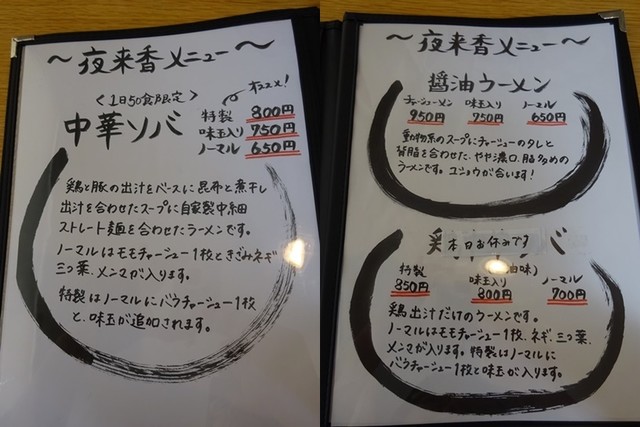 〜夜来香メニュー〜
オススメ!
〈1日50食限定〉
中華ソバ
特製 800円
味玉入り 750円
ノーマル 650円
鶏と豚の出汁をベースに昆布と煮干し
出汁を合わせたスープに自家製中細
ストレート麺を合わせたラーメンです。
ノーマルはモモチャーシュー1枚ときざみネギ
三つ葉、メンマが入ります。
特製はノーマルにバラチャーシュー1枚
と、味玉が追加されます。
〜夜来香メニュー〜
醤油ラーメン
チャーシューメン 味玉入り ノーマル
950円 750円 650円
動物系のスープにチャーシューのタレと
背脂を合わせた、やや濃口、脂多めの
ラーメンです。コショウが合います!
鶏 本日お休みです バ
白味)
特製 味玉入り ノーマル
850円 800円 700円
鶏出汁だけのラーメンです。
ノーマルはモモチャーシュー1枚、ネギ、三つ葉、
メンマが入ります。特製はノーマルに
バラチャーシュー1枚と味玉が入ります。